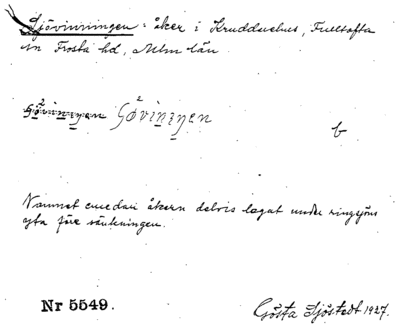 Sjövinningen = åker i Krudduehus, Fulltofta
sn Frosta hd, Mlm län.
b
Namnet emedan åkern delvis legat under ringsjöns
yta före sänkningen.
Nr 5549.
Gösta Sjöstedt 1927.